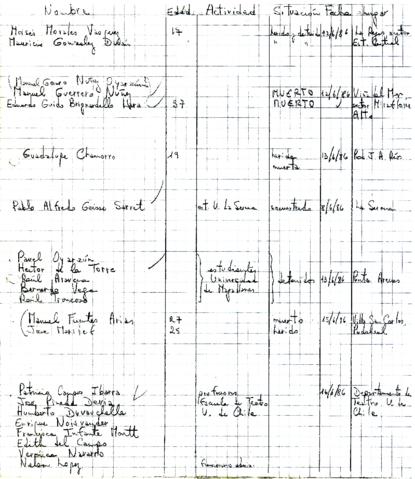 Nombre Edad Actividad Situación Fecha Lugar
Moisés Morales 17 herido y detenido 13/6/86
Mauricio Gonzalez " " Est. Central
(Manuel
Manuel Guerrero Nuñez MUERTO 12/6/86 Viña del Mar
Eduardo Guido 37 MUERTO
Guadalupe Chamorro 19 herida 13/6/86 Pob J. A. Ríos
muerta
Pablo Alfredo est U. La Serena secuestrado 8/6/86 La Serena
Pavel Oyarzún
Hector de la Torre estudiantes
Raúl Universidad detenidos 13/6/86 Punta Arenas
Bernardo Vega de Magallanes
Raúl Troncoso
(Manuel Fuentes Arias 27 muerto 15/6/86 Villa San Carlos,
Jose 25 herido Pudahuel
Patricia Campos Ibarra profesores 14/6/86 Departamento de
Jose Pineda Devia Escuela de Teatro Teatro, U. de
Humberto Duvauchelle U. de Chile Chile
Enrique Noisvander
Francisca Infante Montt
Edith del Campo
Verónica Navarro
Nelson Lopez